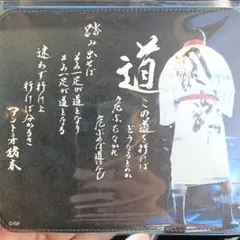 道
この道を行けば
どうなるものか
危ぶむなかれ
危ぶめば道はなし
踏み出せば
その一足が道となり
その一足が道となる
迷わず行けよ
行けばわかるさ
アントニオ猪木
©IGF